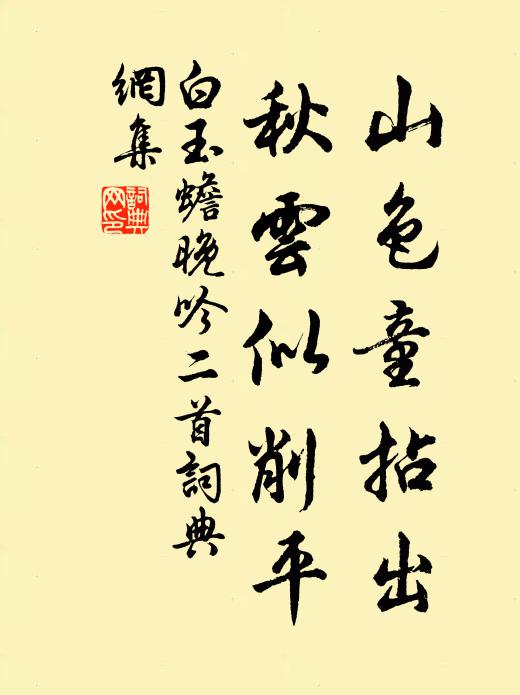 山色童拈出
秋雲似削平
白玉蟾晚吟二首詞典
網集
詞典
网印